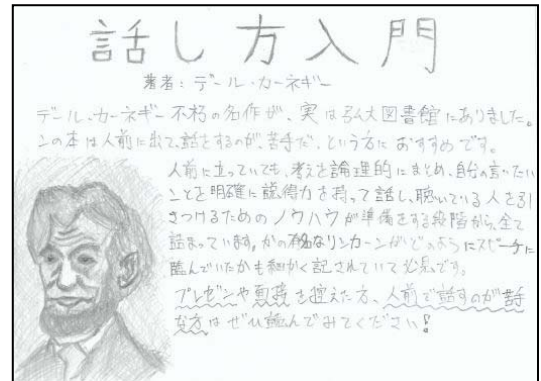 話し方入門
著者：デール・カーネギー
デール・カーネギー不朽の名作が、実は弘大図書館にありました。
この本は人前に出て、話をするのが、苦手だ、という方におすすめです。
人前に立っていても、考えを論理的にまとめ、自分の言いたい
ことを明確に説得力を持って話し、聴いている人を引
きつけるためのノウハウが準備をする段階から、全て
詰まっています。かの有名なリンカーンがどのようにスピーチに
臨んでいたかも細かく記されていて必見です。
プレゼンや面接を控えた方、人前で話すのが苦手
な方はぜひ読んでみてください！